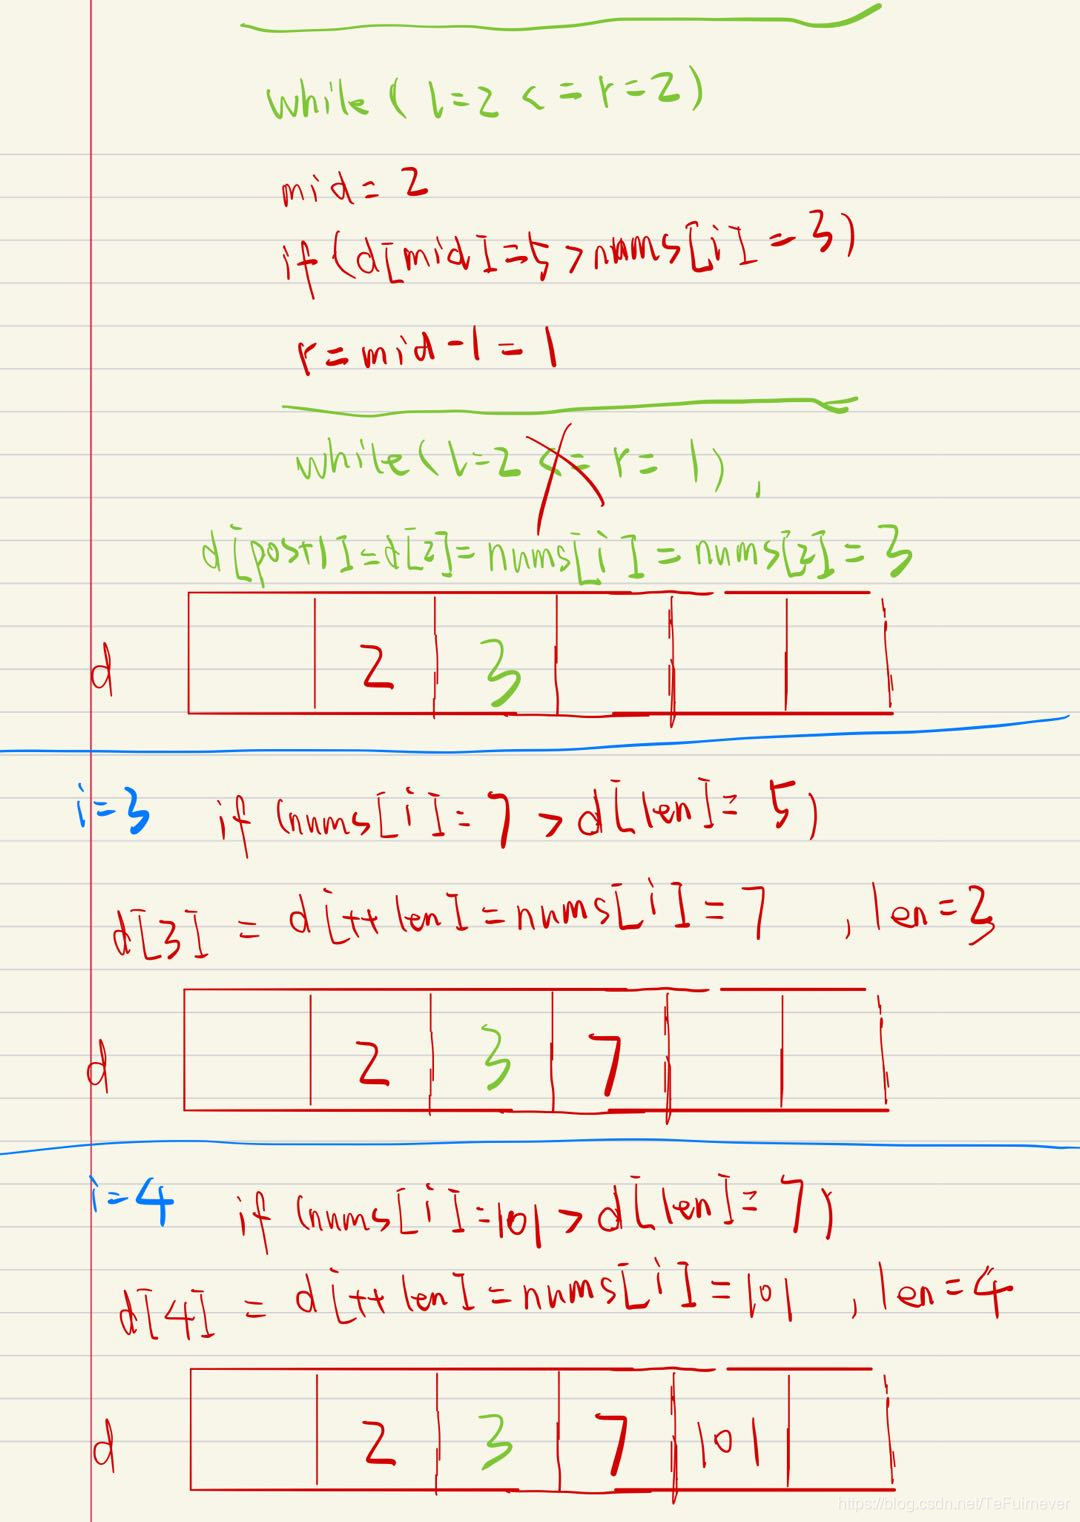 while ( l=2 <= r=2)
mid = 2
if (d[mid]=5 > nums[i] = 3)
r = mid - 1 = 1
while ( l=2 <= r = 1) ,
d[pos+1] = d[2] = nums[i] = nums[2] = 3
d 2 3
i=3 if (nums[i] = 7 > d[len] = 5)
d[3] = d[++len] = nums[i] = 7 , len = 3
d 2 3 7
i=4 if (nums[i] = 101 > d[len] = 7)
d[4] = d[++len] = nums[i] = 101 , len = 4
d 2 3 7 101
https://blog.csdn.net/TeFuirnever